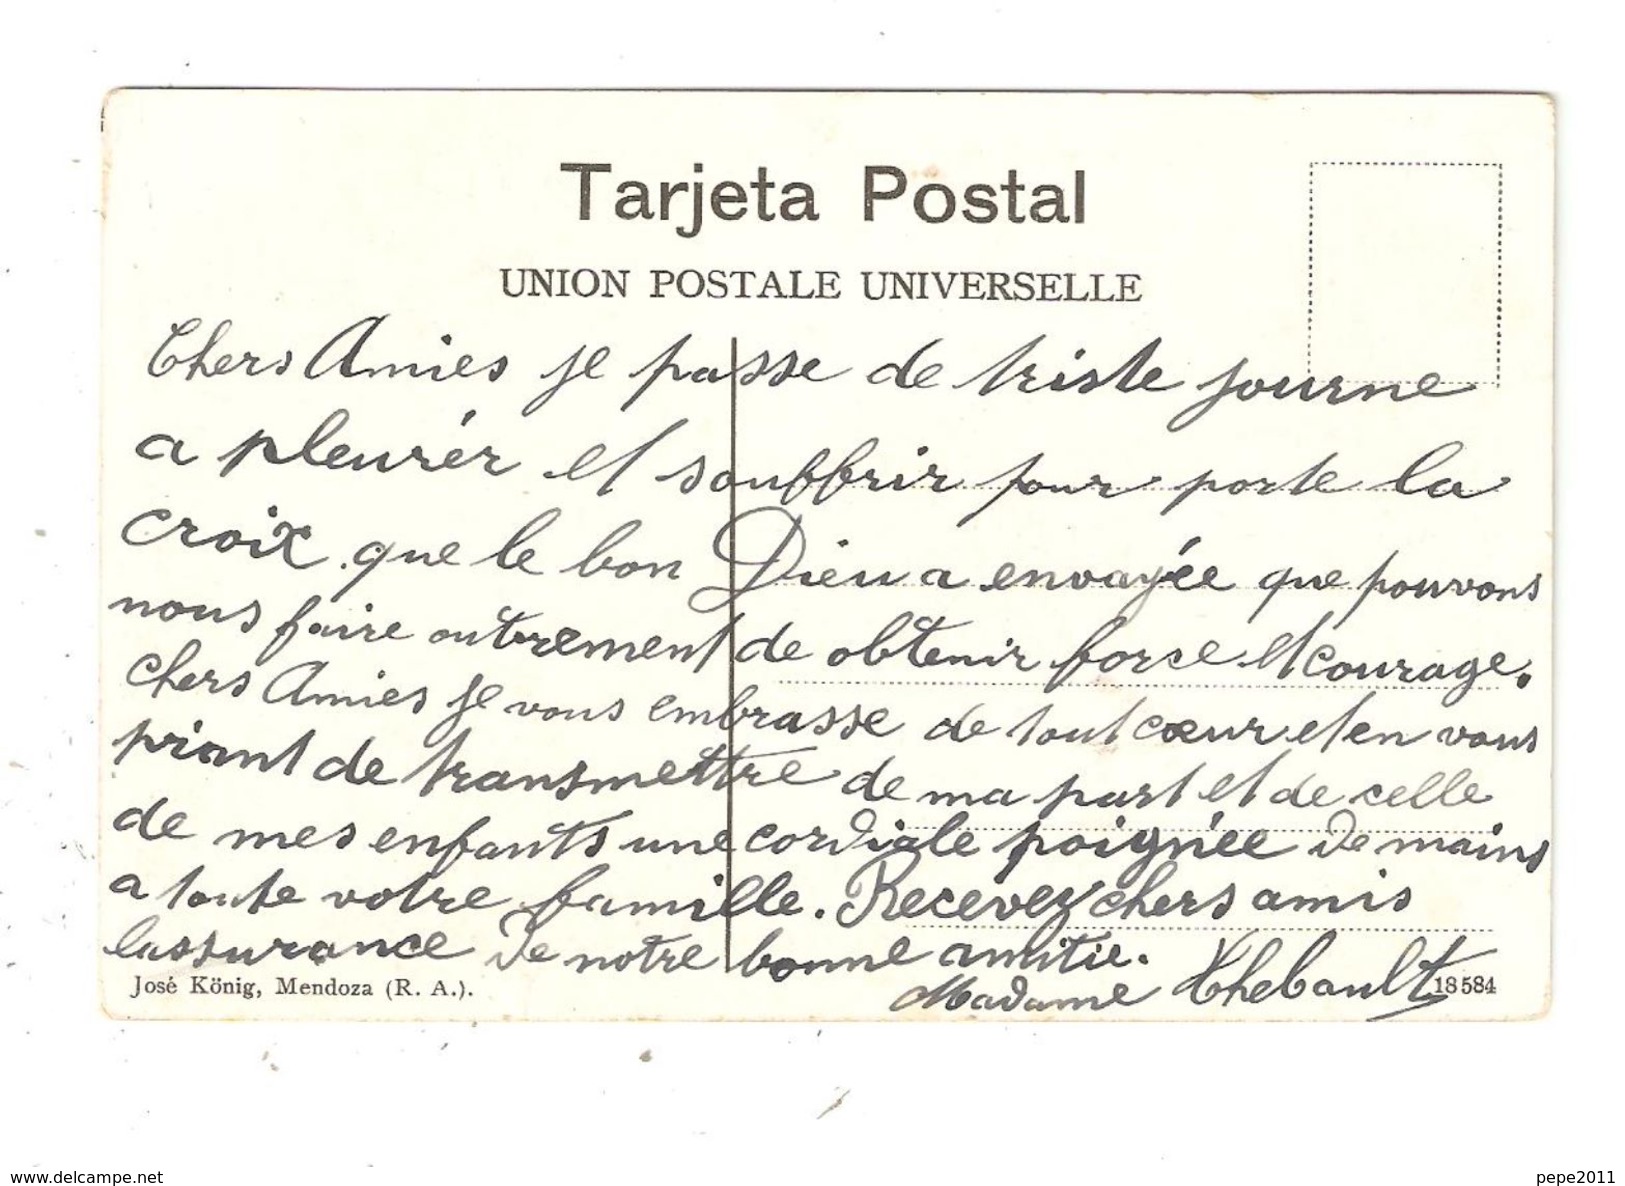 Tarjeta Postal
UNION POSTALE UNIVERSELLE
Chers Amies je passe de triste journe
a pleurér et souffrir pour porte la
croix que le bon Dieu a envoyée que pouvons
nous faire outrement de obtenir force et courage.
chers Amies je vous embrasse de tout cœur et en vous
priant de transmettre de ma part et de celle
de mes enfants une cordiale poignée de mains
a toute votre famille. Recevez chers amis
lassurance de notre bonne amitie.
Madame Thebault
José König, Mendoza (R. A.).
18584
www.delcampe.net
pepe2011